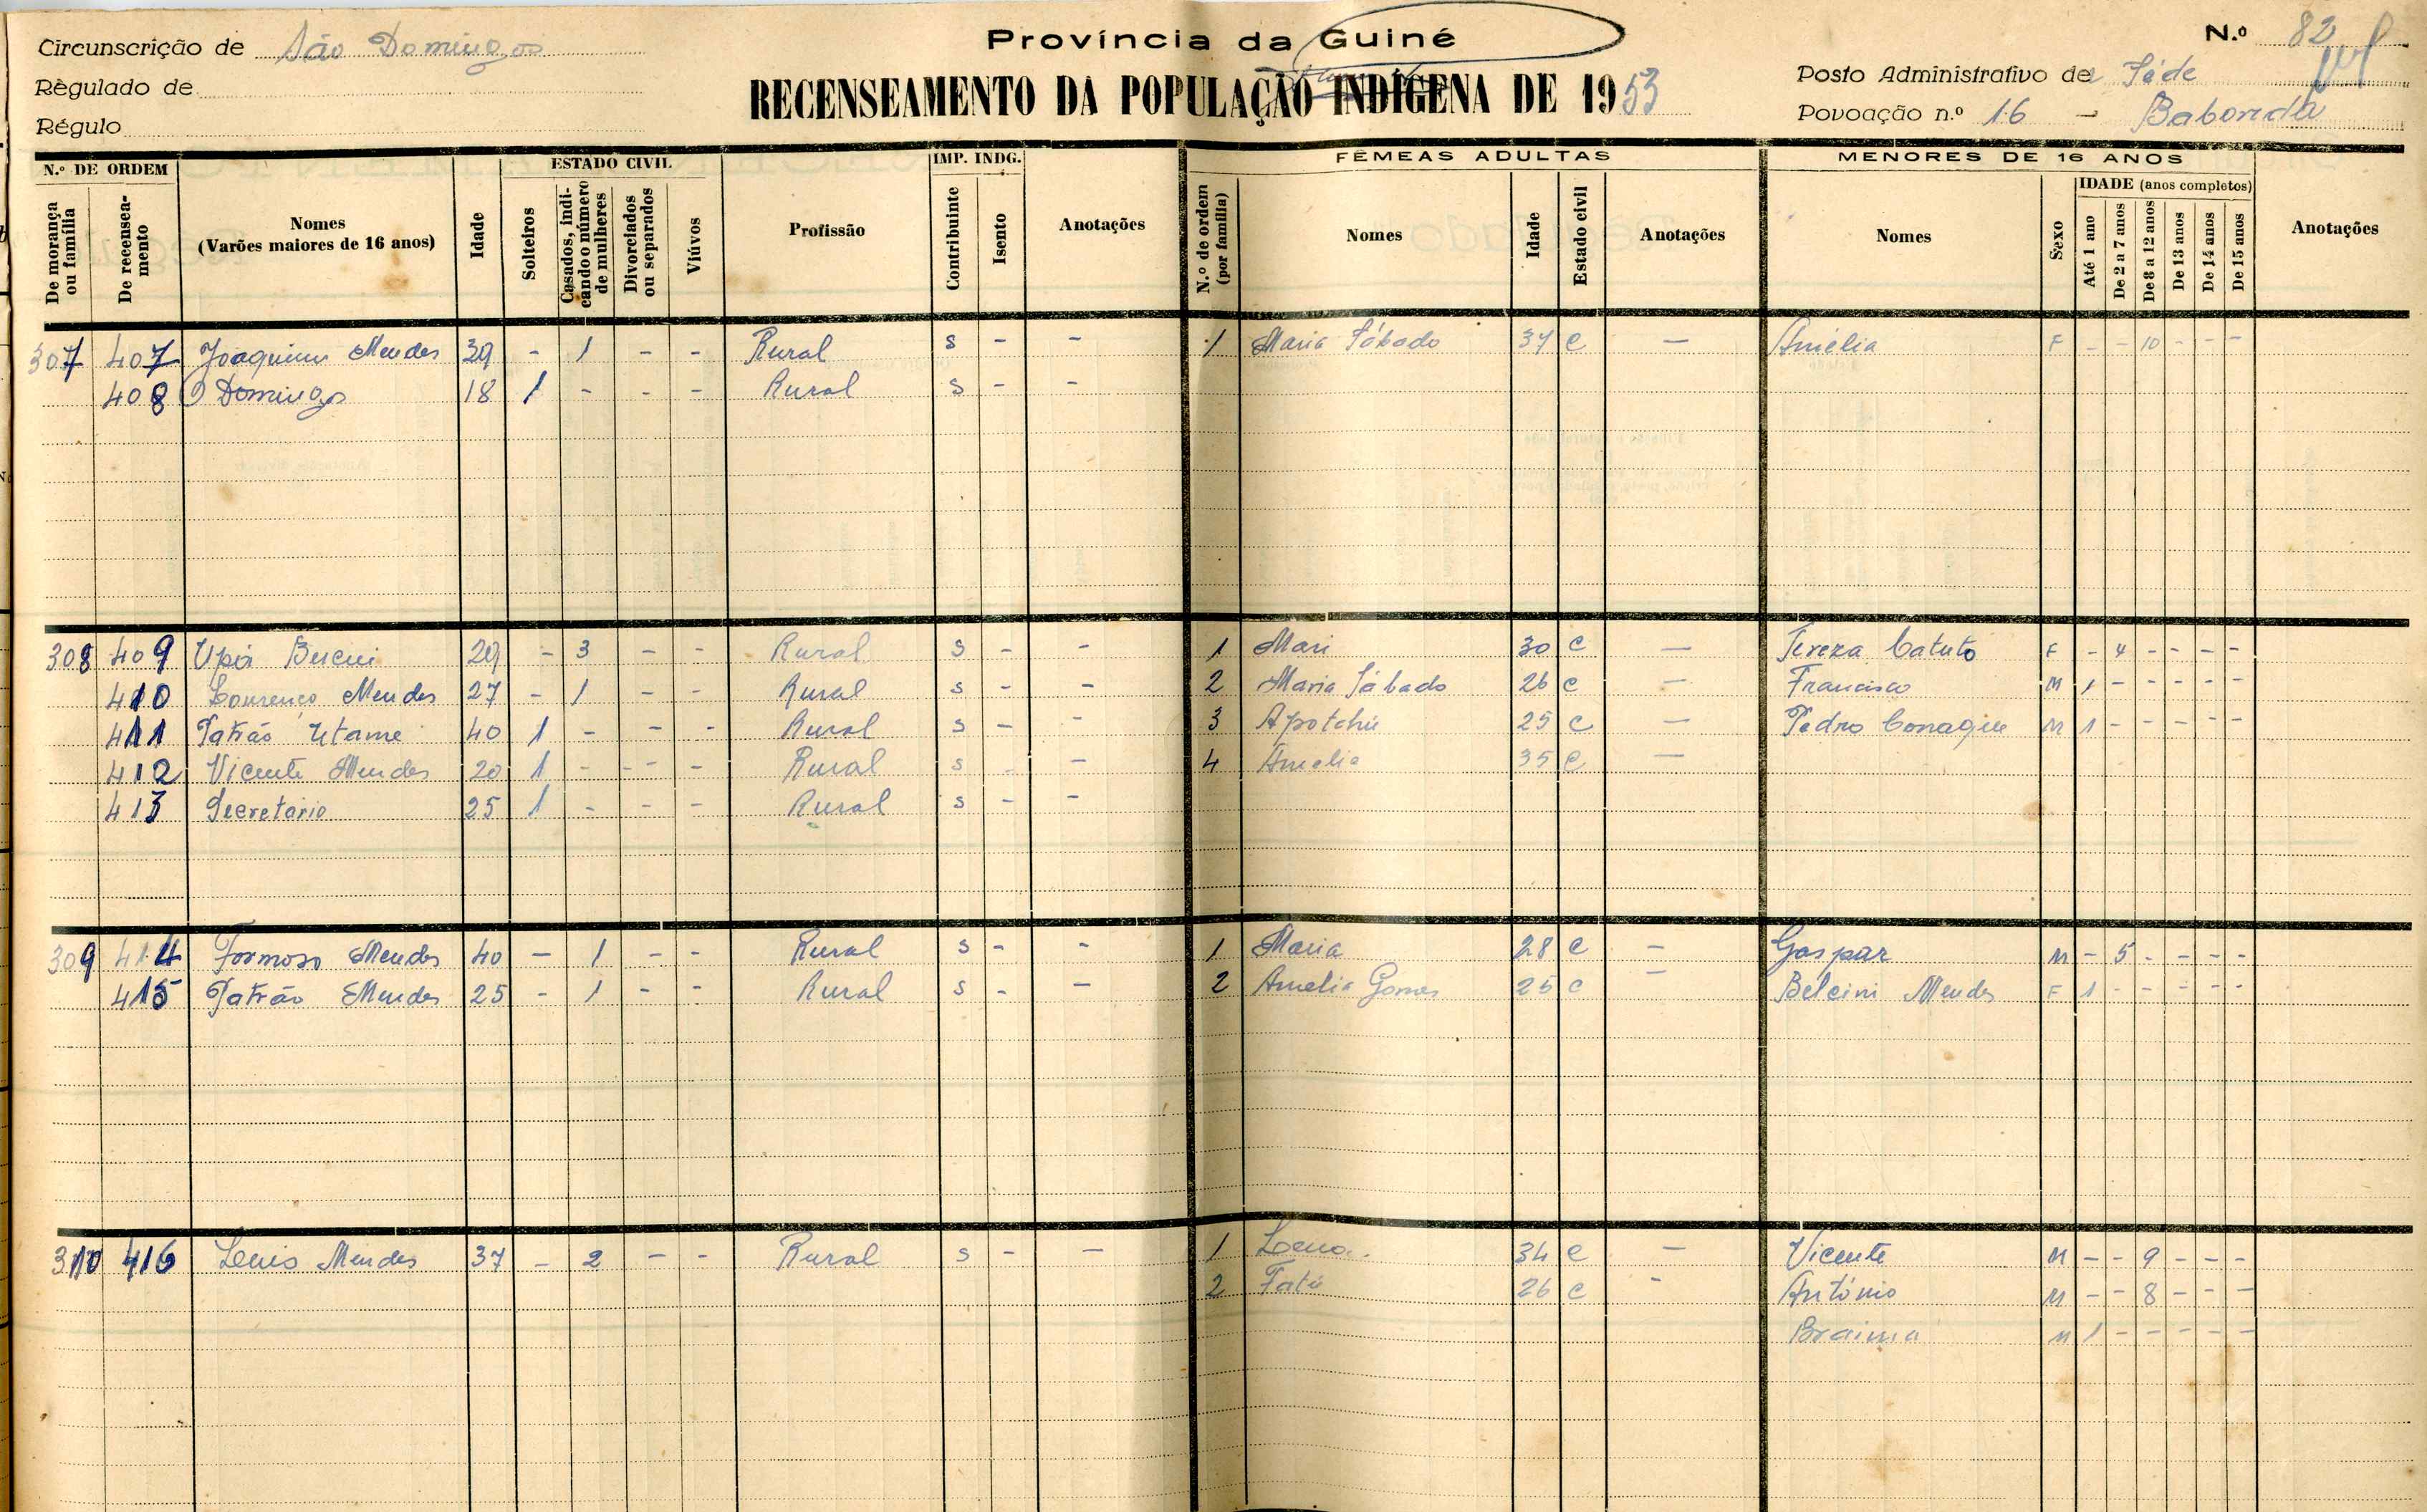 Província da Guiné
Circunscrição de São Domingos
N.º 82
Règulado de
RECENSEAMENTO DA POPULAÇÃO INDÍGENA DE 1953
Posto Administrativo de Séde
Régulo
Povoação n.º 16 - Baborida
N.º DE ORDEM
De morança ou família
De reensea-mento
Nomes (Varões maiores de 16 anos)
Idade
ESTADO CIVIL
Solteiros
Casados, indi-cando o número de mulheres
Divorciados ou separados
Viúvos
Profissão
IMP. INDG.
Contribuinte
Isento
Anotações
FÊMEAS ADULTAS
N.º de ordem (por família)
Nomes
Idade
Estado civil
Anotações
MENORES DE 16 ANOS
Nomes
Sexo
IDADE (anos completos)
Até 1 ano
De 2 a 7 anos
De 8 a 12 anos
De 13 anos
De 14 anos
De 15 anos
Anotações
307 407 Joaquim Mendes 39 - 1 - - Rural s - - 1 Maria Sábado 37 c - Amélia F - - 10 - - -
408 Domingos 18 1 - - - Rural s - -
308 409 Upá 29 - 3 - - Rural s - - 1 Mari 30 c - Tereza Catuto F - 4 - - - -
410 Lourenço Mendes 27 - 1 - - Rural s - - 2 Maria Sábado 26 c - Francisco M 1 - - - - -
411 Patrão Utame 40 1 - - - Rural s - - 3 Apotchú 25 c - Pedro M 1 - - - - -
412 Vicente Mendes 20 1 - - - Rural s - - 4 Amelia 35 c -
413 Secretário 25 1 - - - Rural s - -
309 414 Formoso Mendes 40 - 1 - - Rural s - - 1 Maria 28 c - Gaspar M - 5 - - - -
415 Patrão Mendes 25 - 1 - - Rural s - - 2 Amelia Gomes 25 c - Belcini Mendes F 1 - - - - -
310 416 Luis Mendes 37 - 2 - - Rural s - - 1 34 c - Vicente M - - 9 - - -
2 Fatú 26 c - António M - - 8 - - -
Braima M 1 - - - - -